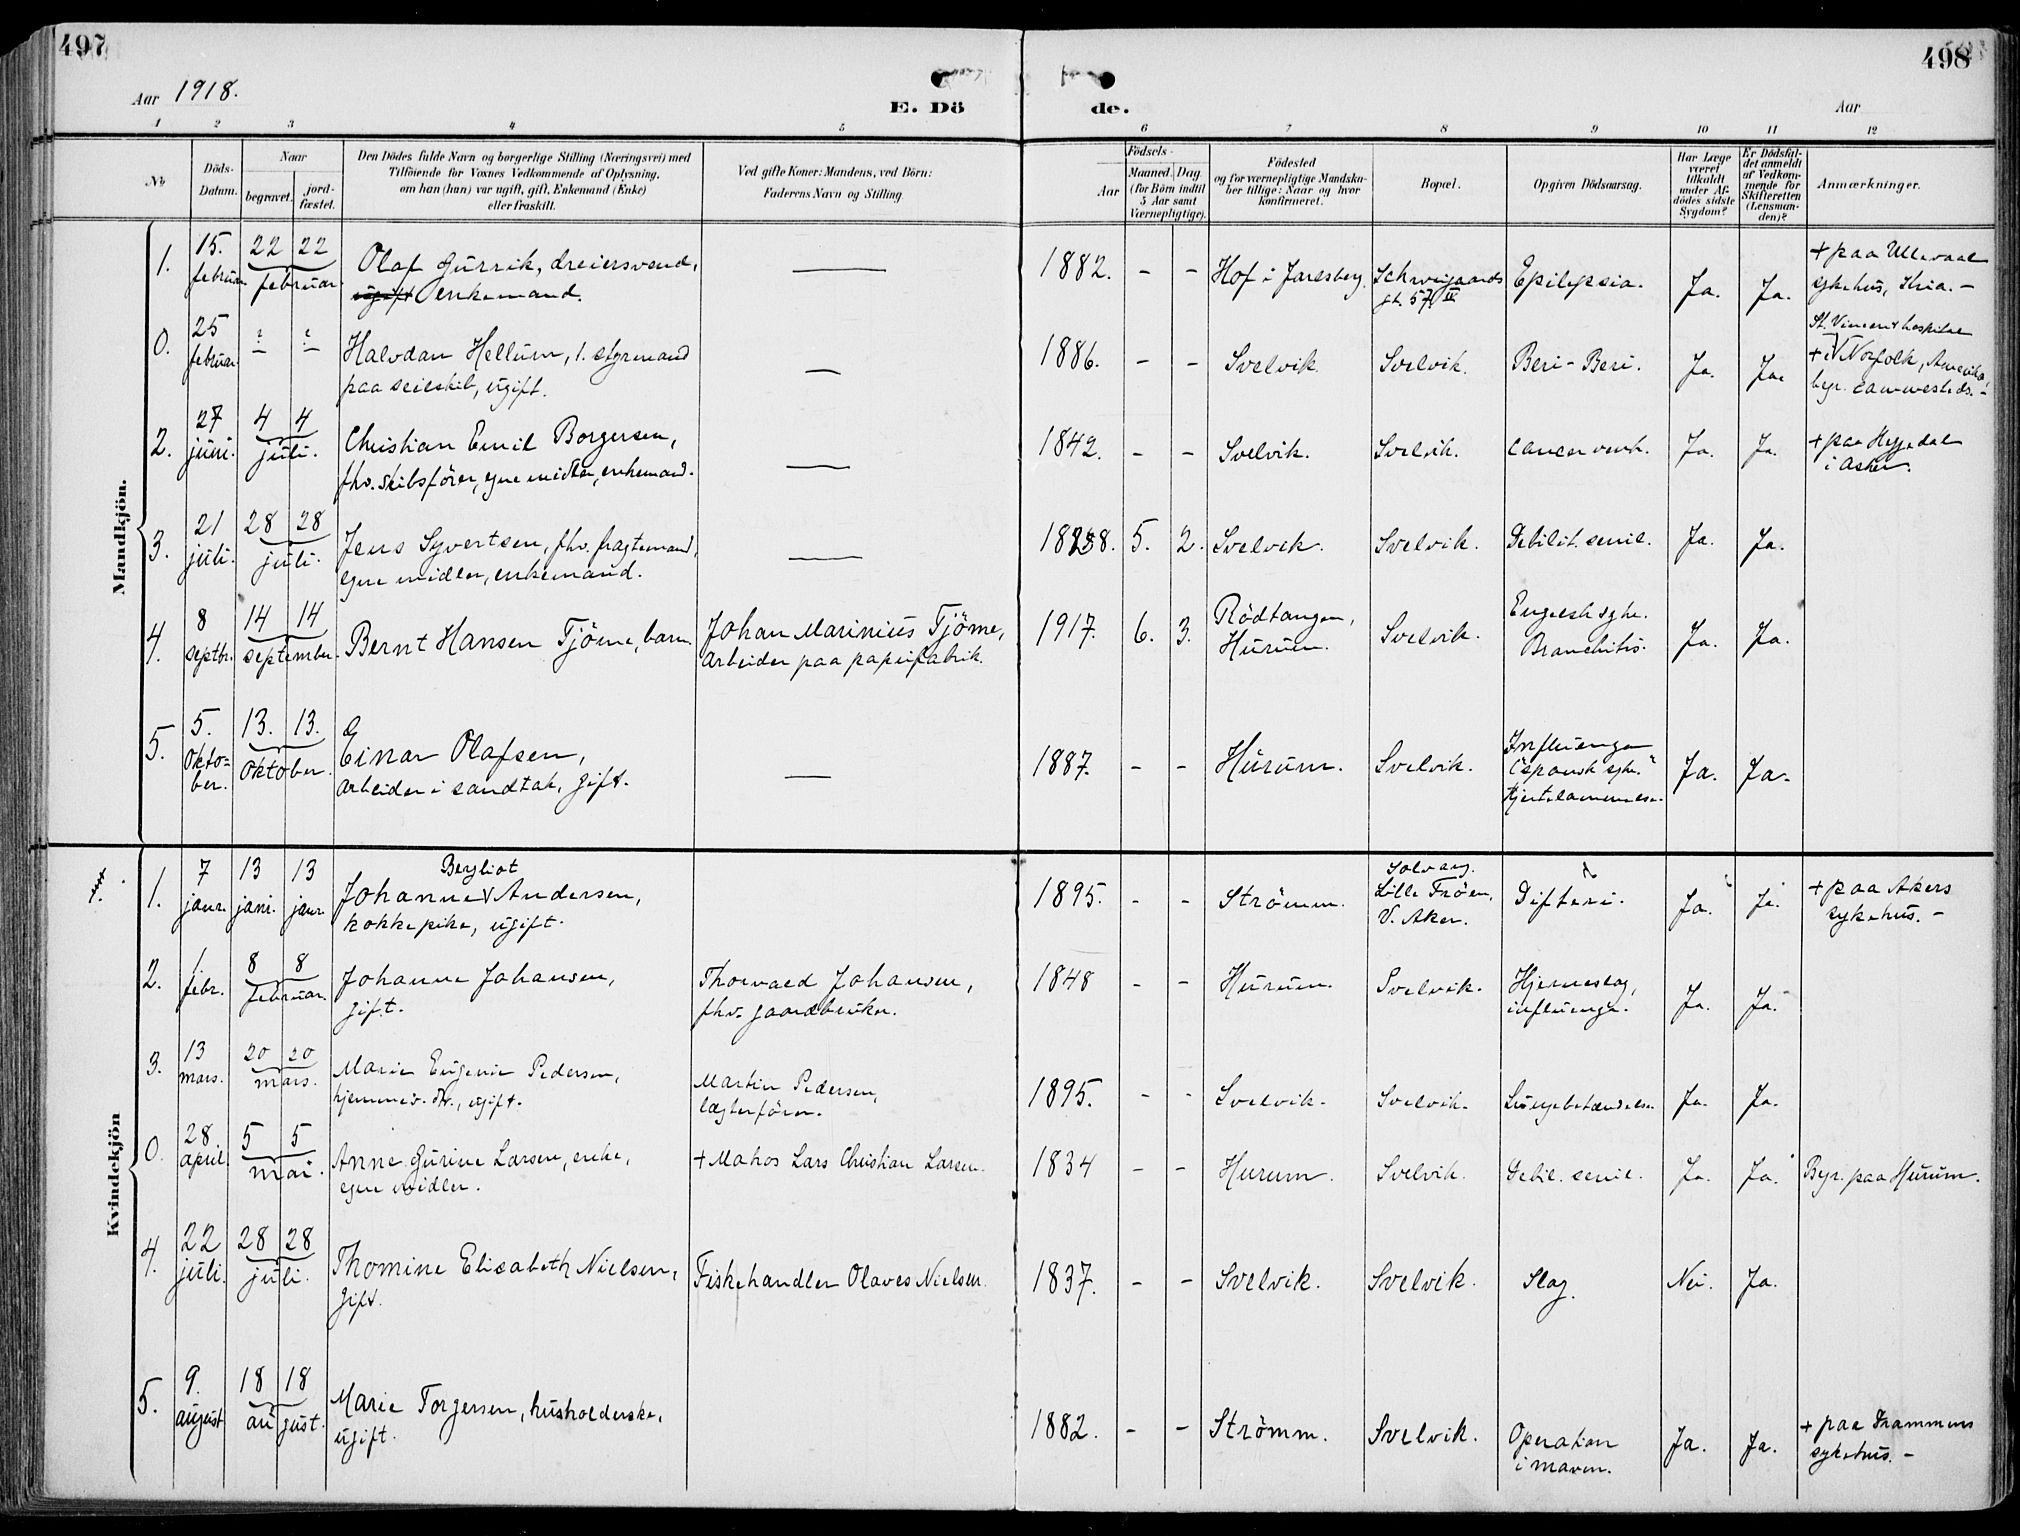 497
498
Aar 1918.
E. Dö
de.
Aar
1 2 3 4 5 6 7 8 9 10 11 12
No
Döds-
Datum.
Naar
begravet.
jord-
fæstet.
Den Dödes fulde Navn og borgerlige Stilling (Næringsvei) med
Tilföiende for Voxnes Vedkommende af Oplysning,
om han (hun) var ugift, gift, Enkemand (Enke)
eller fraskilt.
Ved gifte Koner: Mandens, ved Börn:
Faderens Navn og Stilling
Födsels-
Aar
Maaned. Dag
(for Börn indtil
5 Aar samt
Værnepligtige).
Födested
og for værnepligtige Mandskа-
ber tillige: Naar og hvor
Konfirmeret.
Bopæl.
Opgiven Dödsaarsag.
Har Læge
været
tilkaldt
under Af-
dödes sidste
Sygdom?
Er Dödsfal-
det anmeldt
af Vedkom-
mende for
Skifteretten
(Lensman-
den)?
Anmærkninger.
Mandkjön.
1. 15. februar 22 22 februar
Olaf Gurrik, dreiersvend,
ugift enkemand.
1882. - - Hof i Jarlsberg. Schweigaards
gt. 57 IV Epilepsia. Ja. Ja. + paa Ullevaal
sykehus, Kria. -
0. 25 februar ? ?
Halvdan Hellum, 1. styrmand
paa seilskib, ugift.
1886. - - Svelvik. Svelvik. Beri-Beri. Ja. Ja.
St. Vincent hospital
+ i Norfolk, Amerika,
begr. sammesteds. -
2. 27 juni. 4 4 juli.
Christian Emil Borgersen,
fhv. skibsförer, egne midler, enkemand.
1842. - - Svelvik. Svelvik. cancer ventr. Ja. Ja. + paa Heggedal
i Asker.
3. 21 juli. 28 28 juli.
Jens Syvertsen, fhv. fragtemand,
egne midler, enkemand.
1828. 5. 2. Svelvik. Svelvik. Debilit. senil. Ja. Ja.
4. 8 septbr. 14 14 september.
Bernt Hansen Tjöme, barn. Johan Marinius Tjöme,
Arbeider paa papirfabrik.
1917. 6. 3. Rödtangen,
Hurum. Svelvik. Engelsk syke.
Bronchitis. Ja. Ja.
5. 5. Okto-
ber. 13. 13. Oktober.
Einar Olafsen,
Arbeider i sandtak, gift.
1887. - - Hurum. Svelvik. Influenza
("spansk syke."
Hjertelammelse. Ja. Ja.
Kvindekjön
1. 7 janr. 13 jani. 13 janr.
Bergliot
Johanne V Andersen,
kokkepike, ugift.
1895. - - Strömm. Solvang.
Lille Fröen,
V. Aker. Difteri. Ja. Ja. + paa Akers
sykehus. -
2. 1 febr. 8 8 februar.
Johanne Johansen,
gift.
Thorvald Johansen,
fhv. gaardbruker.
1848 - - Hurum. Svelvik. Hjerneslag,
influenza. Ja. Ja.
3. 13 mars. 20 20 mars.
Marie Eugenie Pedersen,
hjemmev. dtr., ugift.
Martin Pedersen,
lægterförer.
1895. - - Svelvik. Svelvik. Lungebetændelse Ja. Ja.
0. 28 april. 5 5 mai.
Anne Gurine Larsen, enke,
egne midler.
+ Matros Lars Christian Larsen.
1834 - - Hurum. Svelvik. Debil. senil. Ja. Ja. Begr. paa Hurum.
4. 22 juli. 28 28 juli.
Thomine Elisabeth Nielsen,
gift.
Fiskehandler Olaves Nielsen.
1837. - - Svelvik. Svelvik. Slag. Nei. Ja.
5. 9. august 18 18 august.
Marie Torgersen, husholderske,
ugift.
1882. - - Strömm. Svelvik. Operation
i maven. Ja. Ja. + paa Drammens
sykehus. -